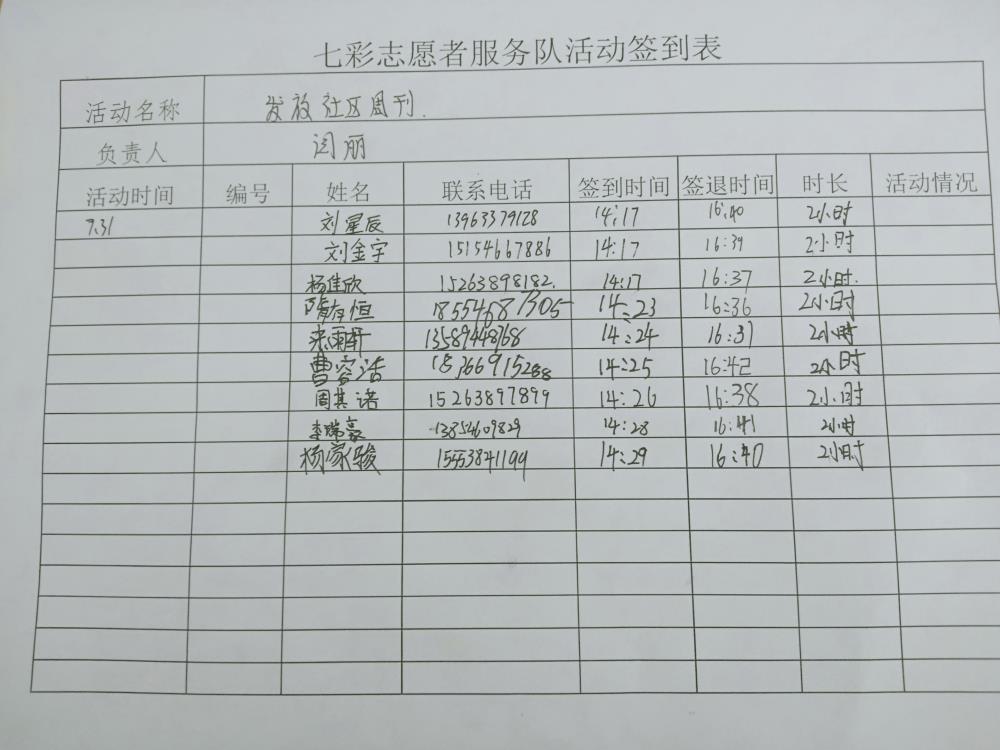 七彩志愿者服务队活动签到表
活动名称 发放社区周刊.
负责人 闫丽
活动时间 编号 姓名 联系电话 签到时间 签退时间 时长 活动情况
7.31 刘星辰 13963379128 14:17 16:40 2小时
刘金宇 15154667886 14:17 16:39 2小时
杨佳欣 15263898182. 14:17 16:37 2小时.
隋存恒 18554687305 14:23 16:36 2小时
宋雨轩 13589448768 14:24 16:37 2小时
曹容浩 18366915288 14:25 16:42 2小时
周其诺 15263897899 14:26 16:38 2小时
李瑞豪 13854609829 14:28 16:41 2小时
杨家骏 15553841199 14:29 16:40 2小时